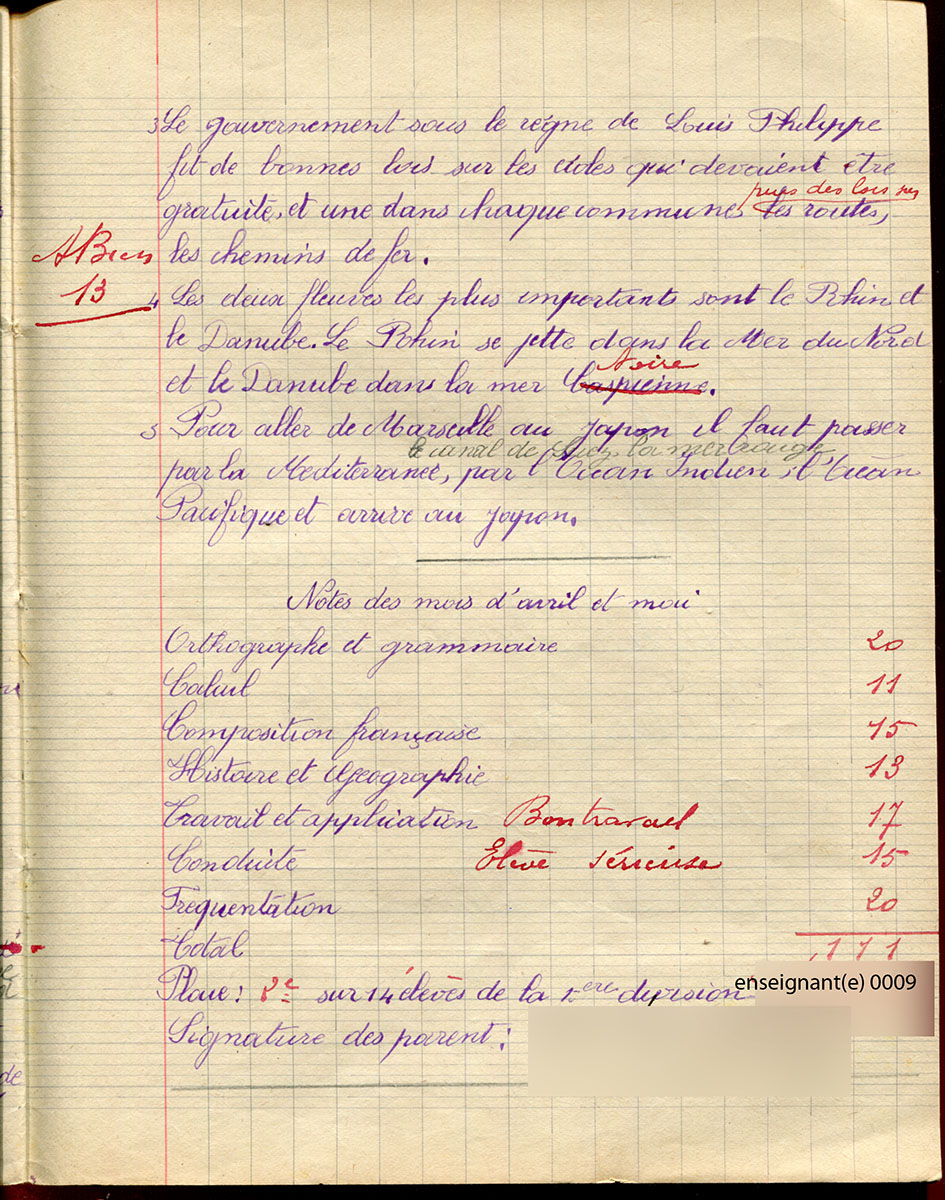 3 Le gouvernement sous le règne de Louis Philippe
fit de bonnes lois sur les écoles qui devaient être
puis des lois sur
gratuite, et une dans chaque commune, les routes,
A Bien
les chemins de fer.
13
4 Les deux fleuves les plus importants sont le Rhin et
le Danube. Le Rhin se jette dans la Mer du Nord
Noire
et le Danube dans la mer Caspienne.
5 Pour aller de Marseille au Japon il faut passer
le canal de Suez la mer rouge
par la Mediterranée, par l'Océan Indien, l'Océan
Pacifique et arrive au Japon.
Notes des mois d'avril et mai
Orthographe et grammaire 20
Calcul 11
Composition française 15
Histoire et Géographie 13
Travail et application Bon travail 17
Conduite Elève sérieuse 15
Frequentation 20
Total 111
Place: sur 14 élevès de la 1ere division
enseignant(e) 0009
Signature des parent: